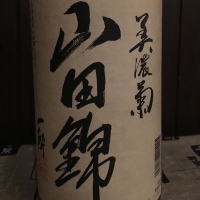 美濃菊
山田錦